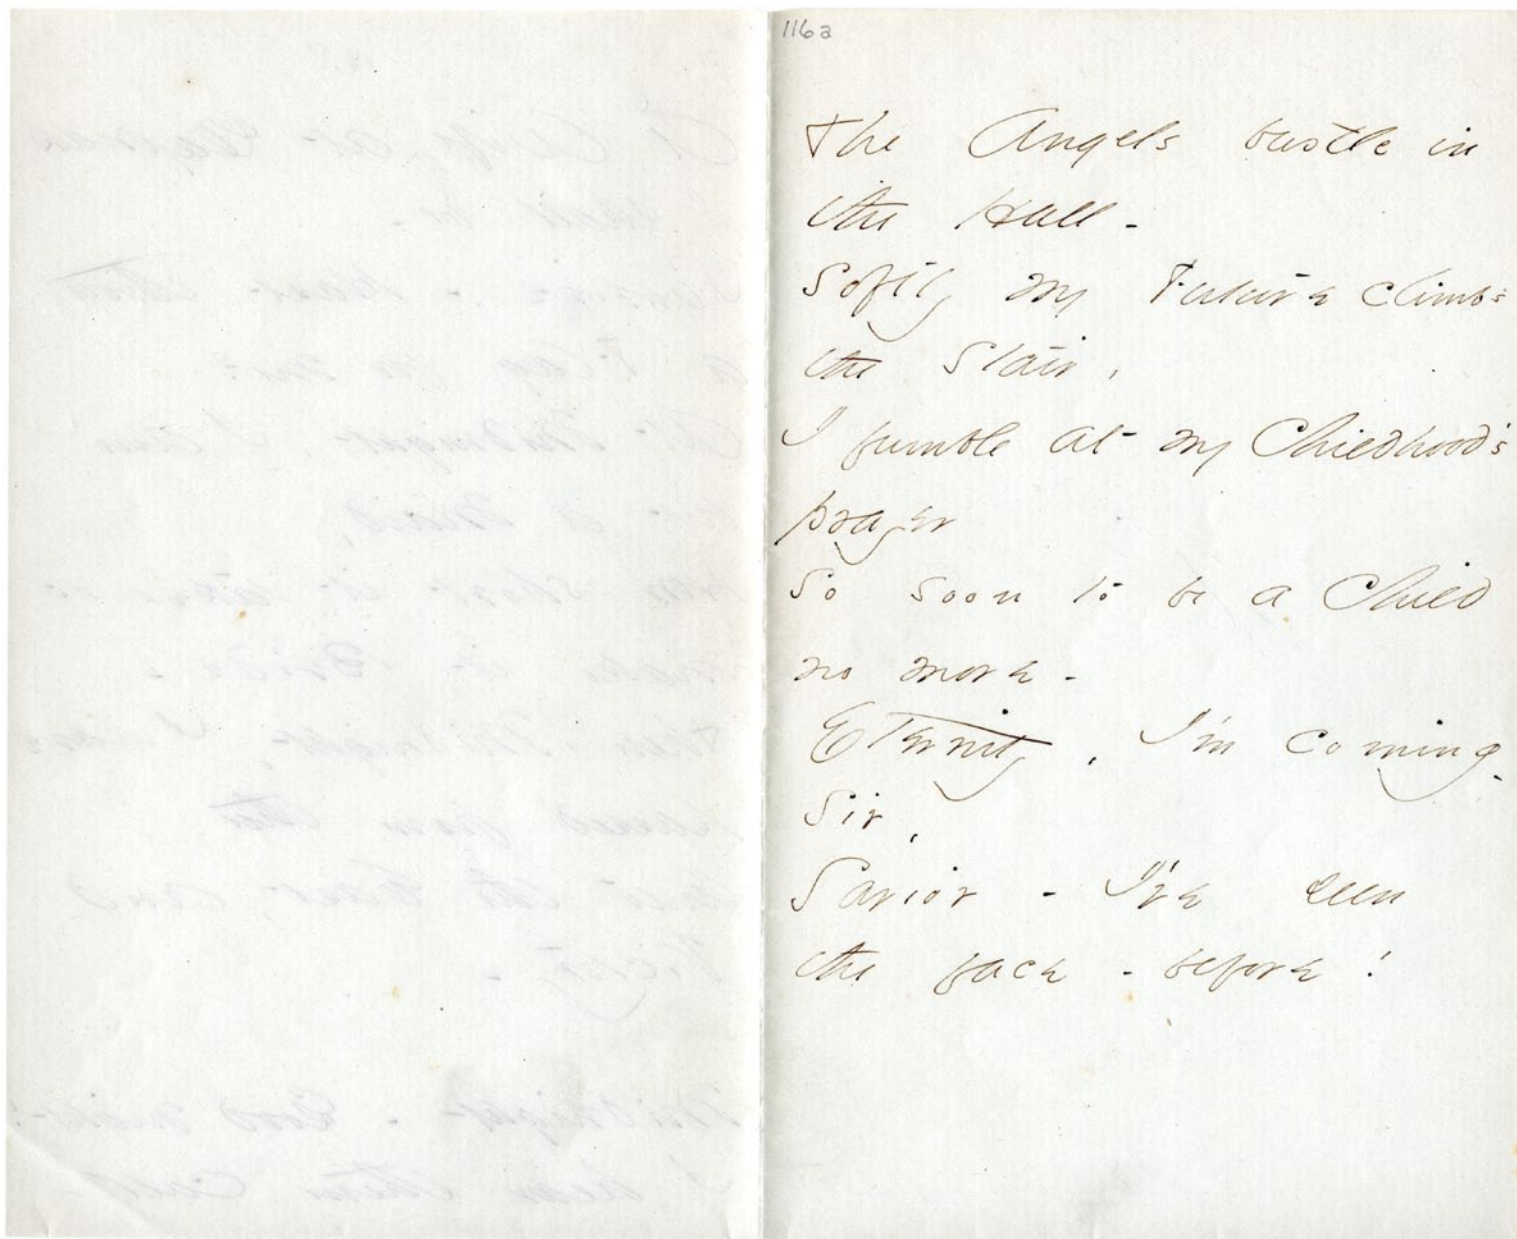 116a
The Angels bustle in
the Hall -
Softly my Future climbs
the Stair,
I fumble at my Childhood's
prayer
So soon to be a Child
no more -
Eternity, I'm coming -
Sir,
Savior - I've seen
the face - before!